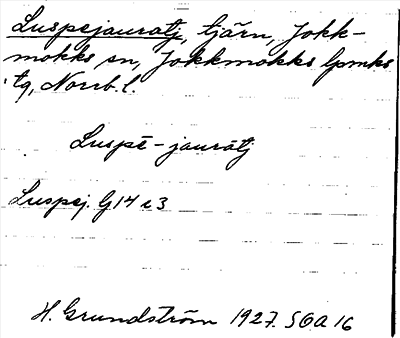 Luspejauratj, tjärn, Jokk-
mokks sn, Jokkmokks lpmks
tg, Norrb. l.
Luspē-jauràtj
Luspej. G14 c3
H. Grundström 1927. SOA 16